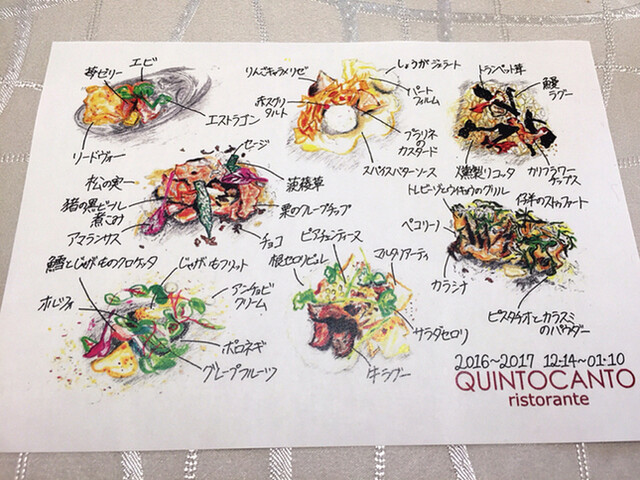 エビ
苺ゼリー
エストラゴン
リードヴォー
りんごキャラメリゼ
しょうがジェラート
赤スグリ
タルト
パート
フィルム
プラリネ
の
カスタード
スパイスバターソース
トランペット茸
鰻
ラグー
燻製リコッタ
カリフラワー
チップス
セージ
松の実
菠薐草
猪の黒ビール
煮こみ
栗のクレープチップ
アマランサス
チョコ
仔羊のストゥファート
ペコリーノ
カラシナ
ピスタチオとカラスミ
のパウダー
鱈とじゃがいものクロケッタ
じゃがいもフリット
アンチョビ
クリーム
ポロネギ
グレープフルーツ
根セロリピュレ
ピアチェンティーヌ
マルタリアーティ
サラダセロリ
牛ラグー
2016~2017 12.14~01.10
QUINTOCANTO
ristorante